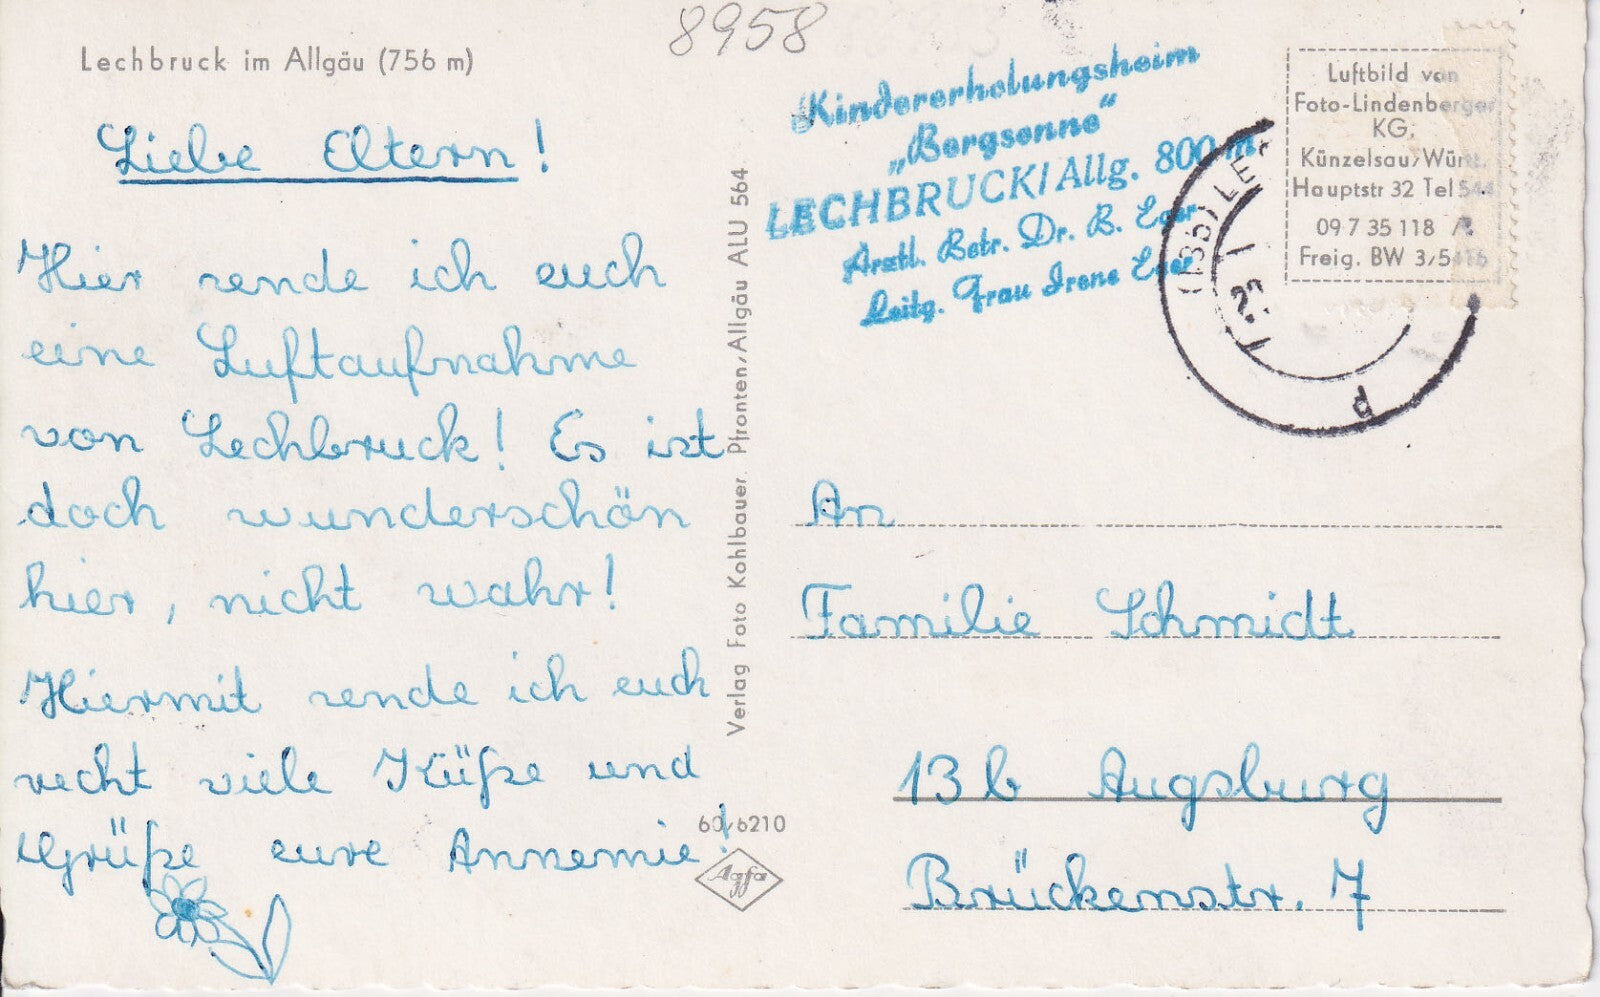 8958
Lechbruck im Allgäu (756 m)
Liebe Eltern!
Hier sende ich euch
eine Luftaufnahme
von Lechbruck! Es ist
doch wunderschön
hier, nicht wahr!
Hiermit sende ich euch
recht viele Küße und
Grüße eure Annemie!
Verlag Foto Kohlbauer. Pfronten/Allgäu ALU 564
60/6210
Agfa
Kindererholungsheim
„Bergsonne“
LECHBRUCK/Allg. 800 m
Ärztl. Betr. Dr. B. Eger
Leitg. Frau Irene Eger
Luftbild von
Foto-Lindenberger
KG.
Künzelsau/Württ.
Hauptstr 32 Tel 544
09 7 35 118
Freig. BW 3/5416
An
Familie Schmidt
13b Augsburg
Brückenstr. 7